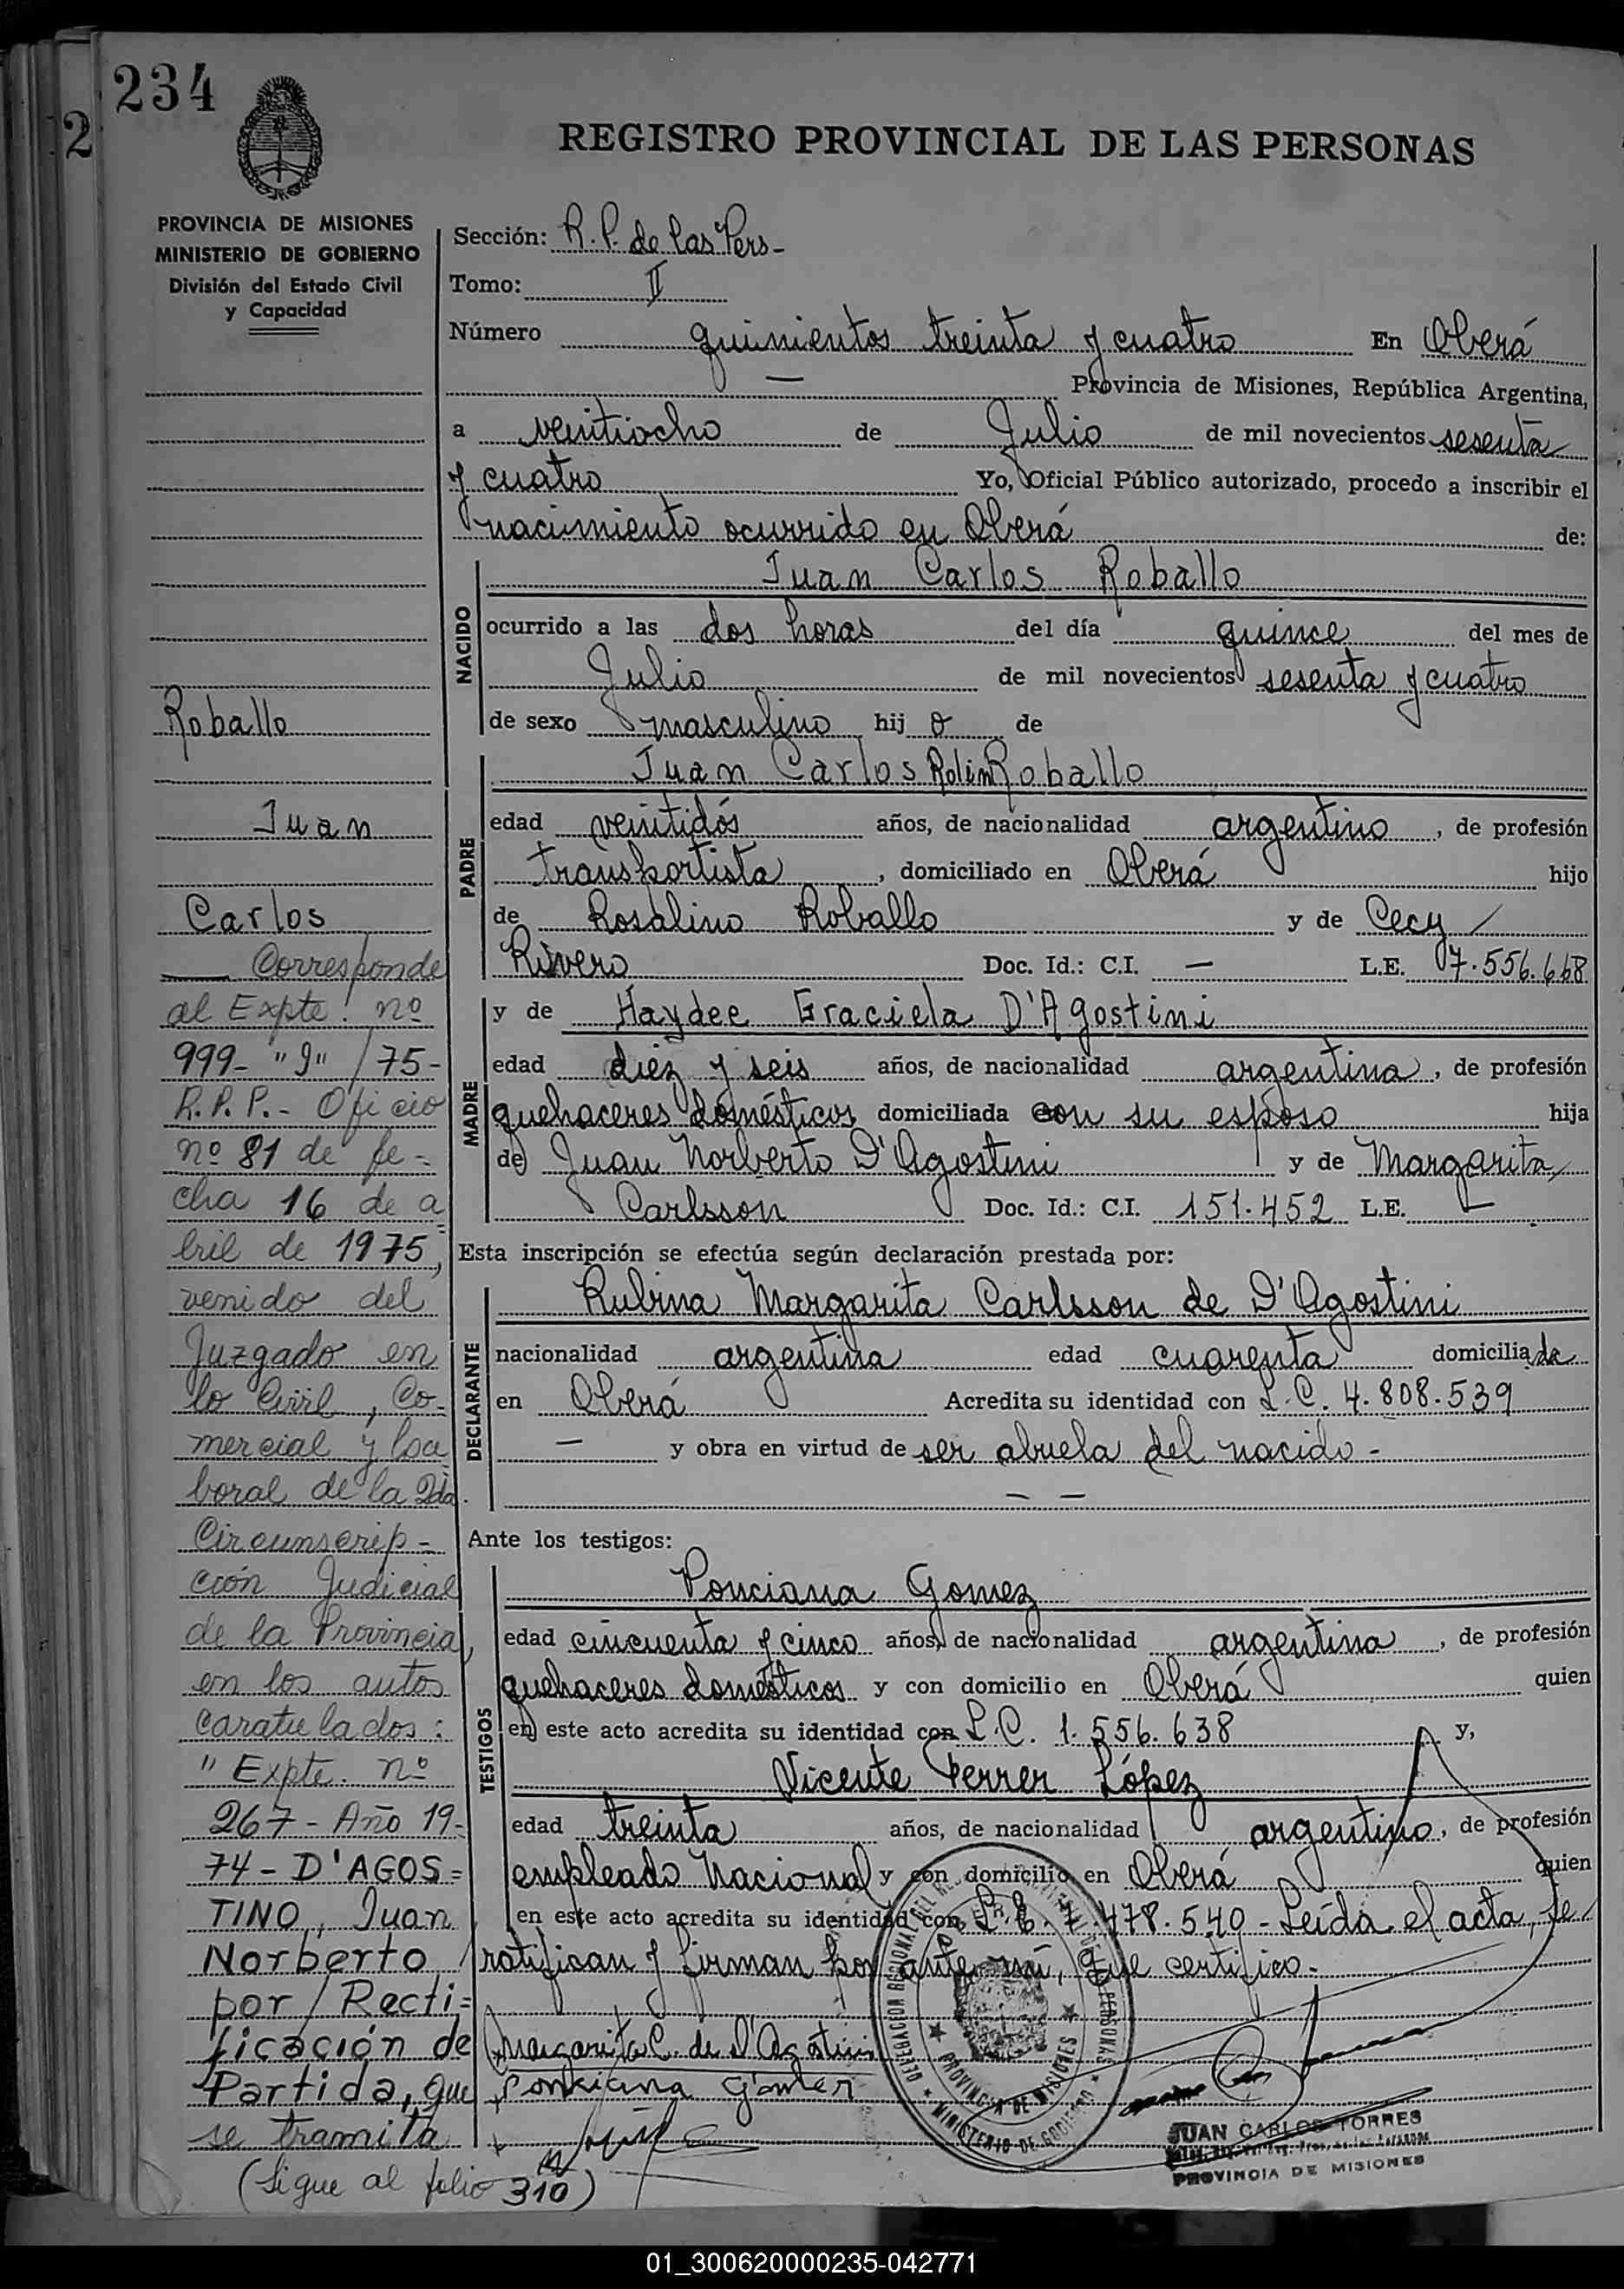 234
2
REGISTRO PROVINCIAL DE LAS PERSONAS
PROVINCIA DE MISIONES
MINISTERIO DE GOBIERNO
División del Estado Civil
y Capacidad
Sección: R. P. de las Pers-
Tomo: II
Número quinientos treinta y cuatro En Oberá
— Provincia de Misiones, República Argentina,
a veintiocho de Julio de mil novecientos sesenta
y cuatro Yo, Oficial Público autorizado, procedo a inscribir el
nacimiento ocurrido en Oberá de:
NACIDO
Juan Carlos Roballo
ocurrido a las dos horas del día quince del mes de
Julio de mil novecientos sesenta y cuatro
de sexo masculino hij o de
PADRE
Juan Carlos Rolin Roballo
edad veintidós años, de nacionalidad argentino, de profesión
transportista, domiciliado en Oberá hijo
de Rosalino Roballo y de Cecy
Rivero Doc. Id.: C.I. — L.E. 7.556.668
MADRE
y de Haydee Graciela D'Agostini
edad diez y seis años, de nacionalidad argentina, de profesión
quehaceres domésticos domiciliada con su esposo hija
de Juan Norberto D'Agostini y de Margarita
Carlsson Doc. Id.: C.I. 151.452 L.E. —
Esta inscripción se efectúa según declaración prestada por:
DECLARANTE
Rubina Margarita Carlsson de D'Agostini
nacionalidad argentina edad cuarenta domiciliada
en Oberá Acredita su identidad con L.C. 4.808.539
— y obra en virtud de ser abuela del nacido -
— —
Ante los testigos:
TESTIGOS
Ponciana Gomez
edad cincuenta y cinco años, de nacionalidad argentina, de profesión
quehaceres domésticos y con domicilio en Oberá quien
en este acto acredita su identidad con L.C. 1.556.638 y,
Vicente Ferrer López
edad treinta años, de nacionalidad argentino, de profesión
empleado Nacional y con domicilio en Oberá quien
en este acto acredita su identidad con L.E. 478.540 - Leída el acta, se
ratifican y firman por ante mí, que certifico.-
Margarita C. de D'Agostini
Ponciana Gomez
DELEGACION REGIONAL DEL REGISTRO PROVINCIAL DE LAS PERSONAS
OBERA
PROVINCIA DE MISIONES
MINISTERIO DE GOBIERNO
JUAN CARLOS TORRES
PROVINCIA DE MISIONES
Roballo
Juan
Carlos
— Corresponde
al Expte. nº
999- "J" / 75-
R.P.P.- Oficio
nº 81 de fe-
cha 16 de a
bril de 1975,
venido del
Juzgado en
lo Civil, Co-
mercial y Loa
boral de la 2da.
Circunscrip-
ción Judicial
de la Provincia,
en los autos
caratulados:
"Expte. nº
267 - Año 19-
74 - D'AGOS=
TINO, Juan
Norberto
por / Recti=
ficación de
Partida, que
se tramita
(Sigue al folio 310)
01_300620000235-042771